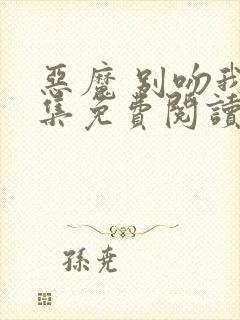 惡魔別吻我
集免費閱讀
孫堯